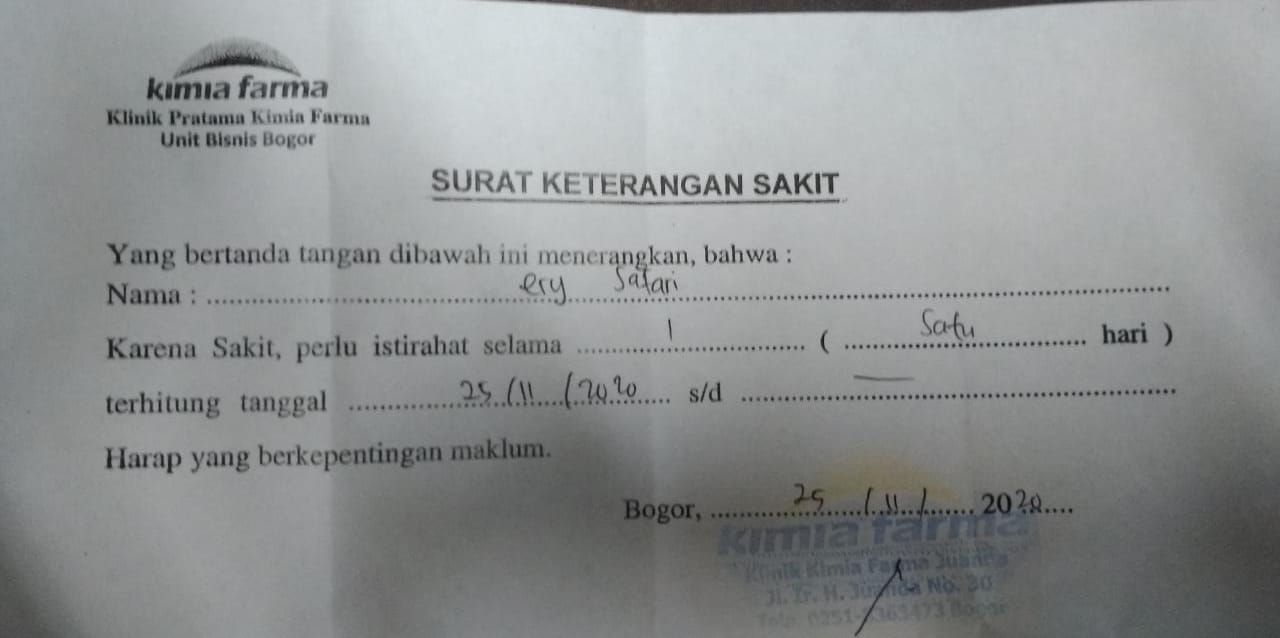 kimia farma
Klinik Pratama Kimia Farma
Unit Bisnis Bogor
SURAT KETERANGAN SAKIT
Yang bertanda tangan dibawah ini menerangkan, bahwa :
Nama : ery Safari
Karena Sakit, perlu istirahat selama 1 ( Satu hari )
terhitung tanggal 25/11/2020 s/d —
Harap yang berkepentingan maklum.
Bogor, 25/11/2020
kimia farma
Klinik Kimia Farma Juanda
Jl. Ir. H. Juanda No. 30
Telp. Bogor